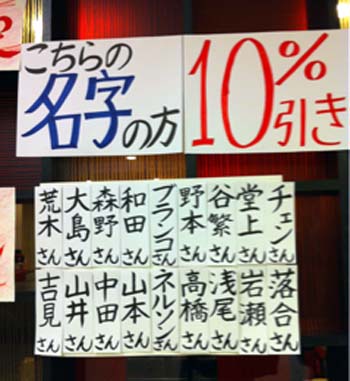 こちらの
名字の方
10%
引き
チェンさん
堂上さん
谷繁さん
野本さん
ブランコさん
和田さん
森野さん
大島さん
荒木さん
落合さん
岩瀬さん
浅尾さん
高橋さん
ネルソンさん
山本さん
中田さん
山井さん
吉見さん